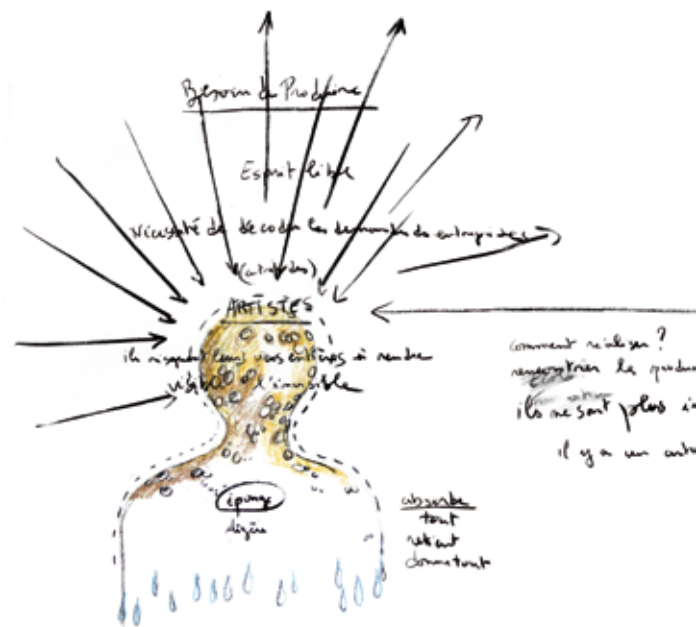 Besoin de Produire
Esprit libre
Nécessité de décoder les demandes des entreprises
ARTISTES
ils risquent leurs vies entières à rendre
visible l'invisible
éponge
digère
absorbe
tout
retient
donne tout
comment réaliser ?
rencontrer les
ils ne sont plus
il y a un